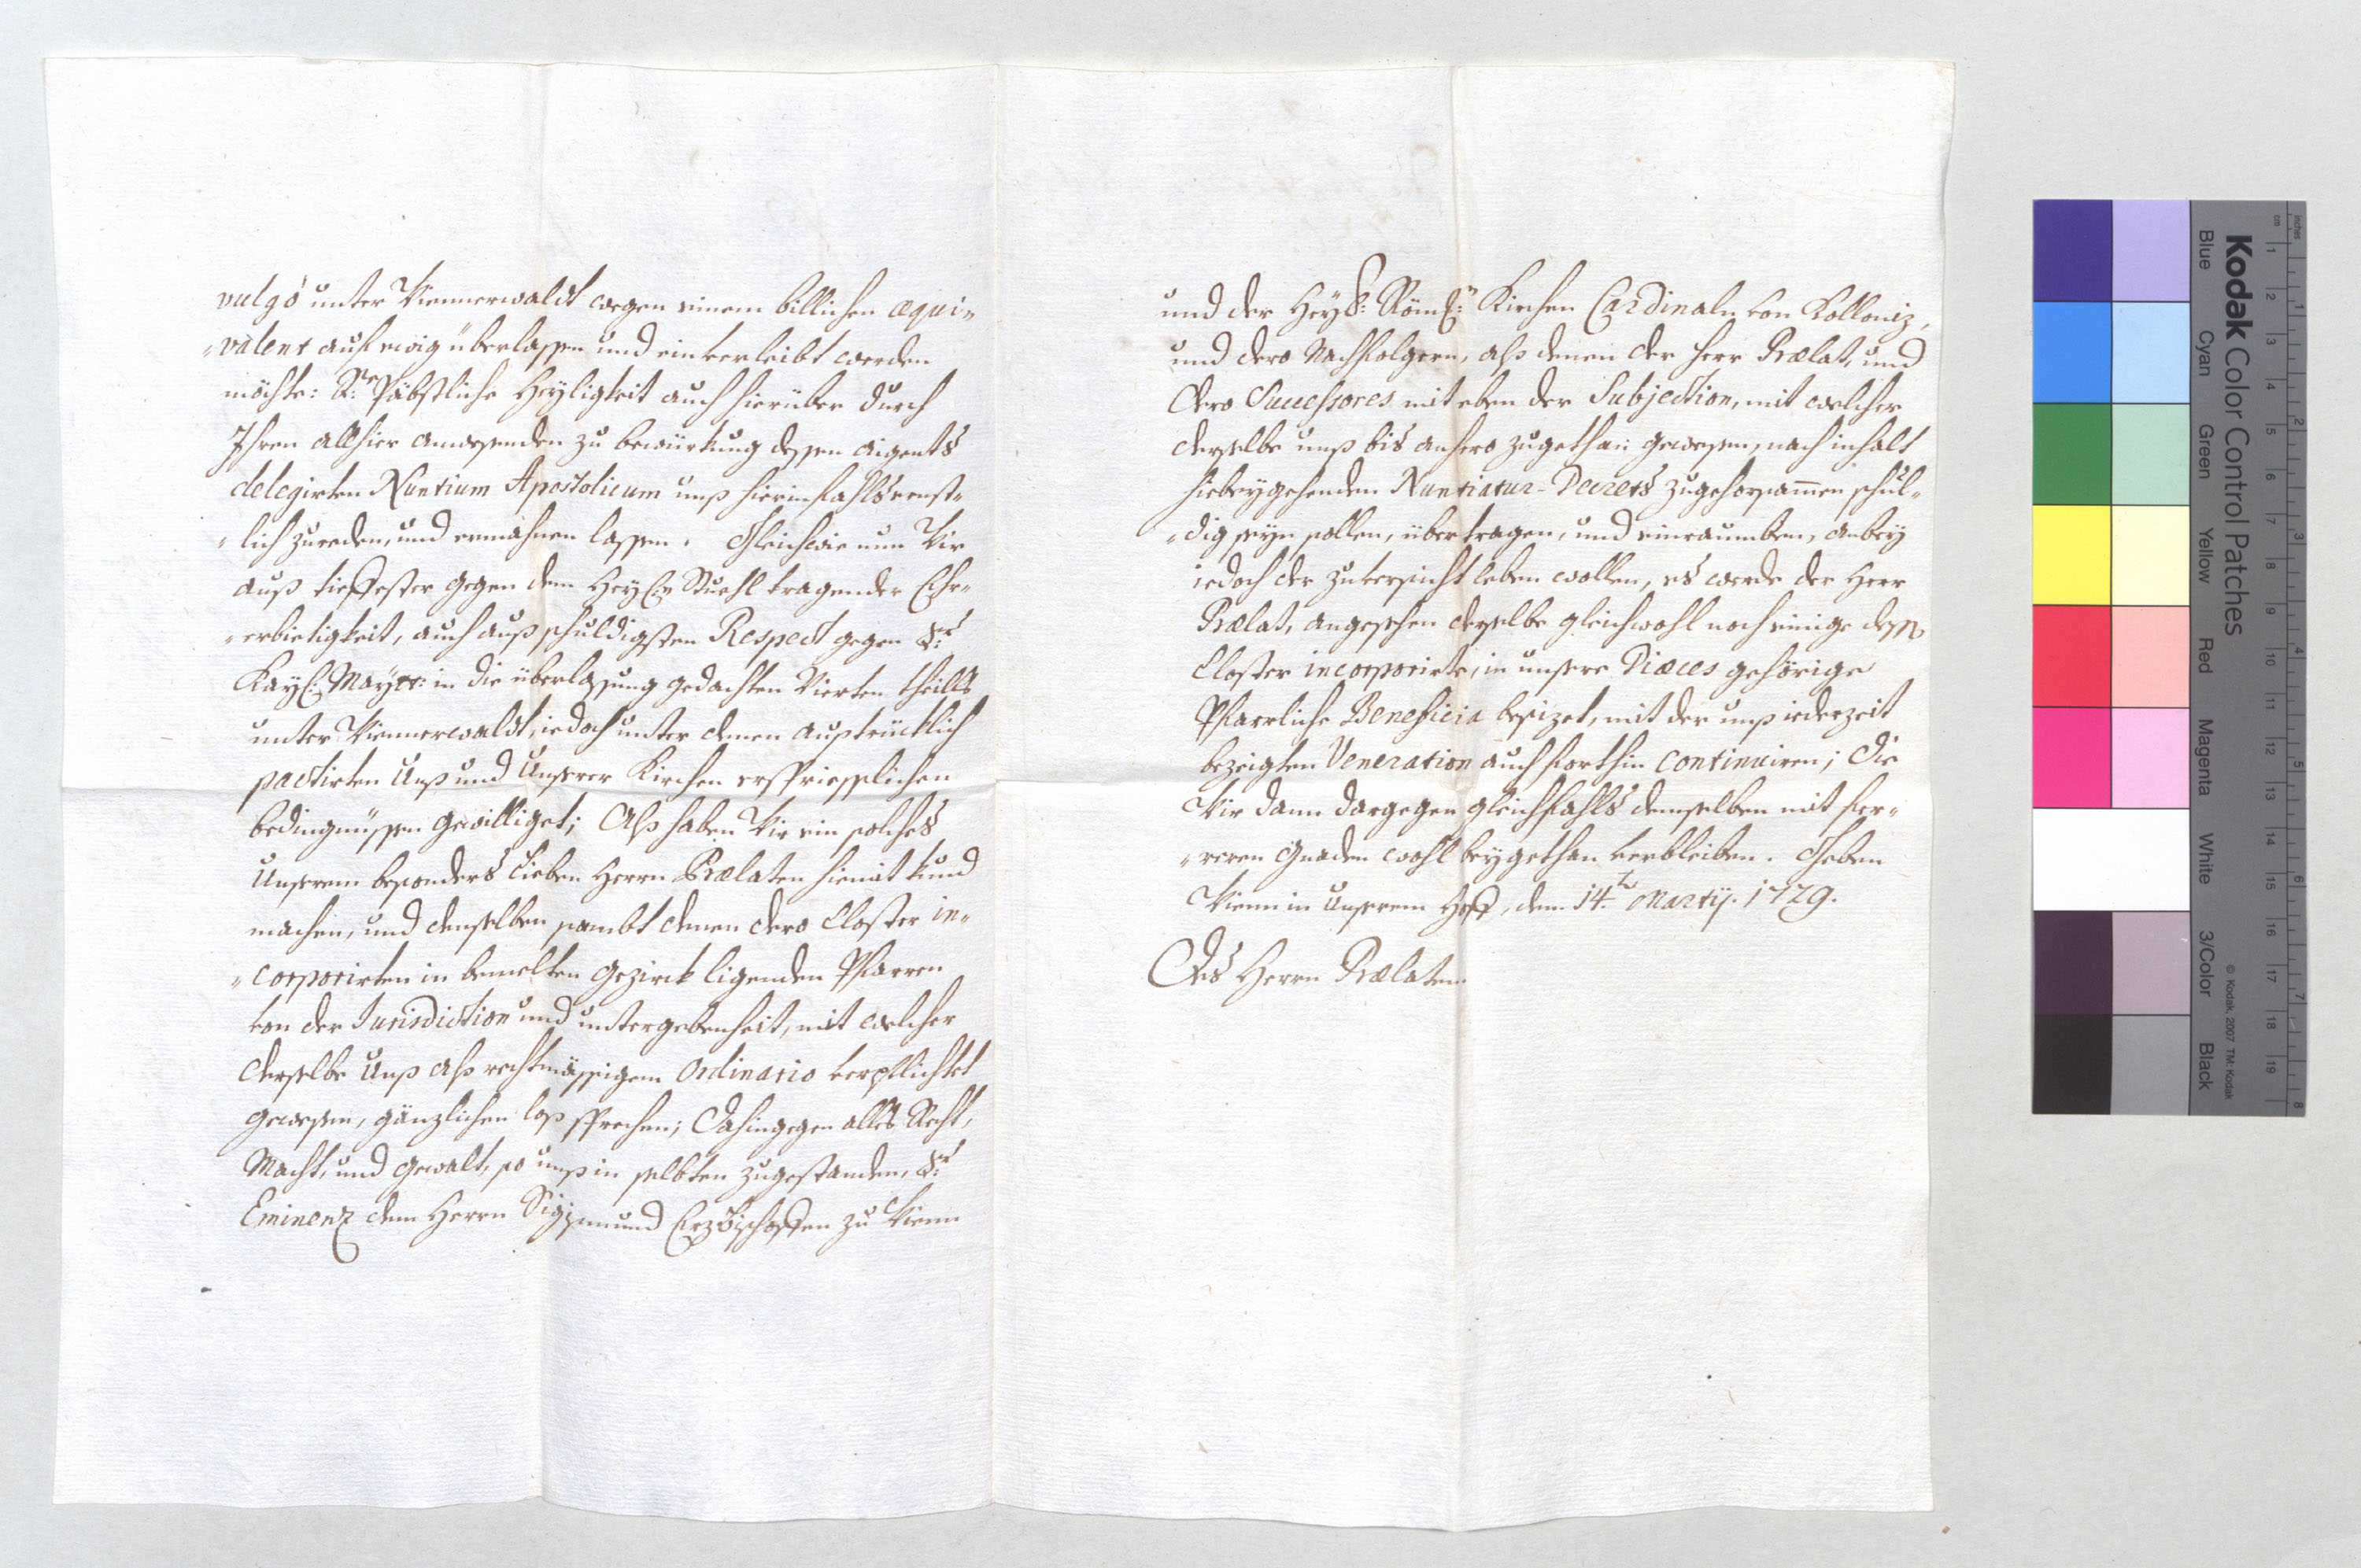 vulgò unter Wiennerwaldt wegen einem billichen æqui-
-valent auf ewig überlassen und einverleibt werden
möchte: Sr. Päbstliche Heyligkeit auch hierüber durch
Ihren allhier anwesenden zu bewürkung dessen aigents
delegirten Nuntium Apostolicum unß hierinfahls ernst-
-lich zureden, und ermahnen lassen. Gleichwie nun Wir
auß tieffester gegen dem Heyl: Stuehl tragender Ehr-
-erbietigkeit, auch auß schuldigsten Respect gegen Sr.
Kayl: Maytt: in die überlassung gedachten Vierten theills
unter Wiennerwaldt, iedoch unter denen außtrücklich
pactirten Unß und Unserer Kirchen ersprießlichen
bedingnüssen gewilliget; Alß haben Wir ein solches
Unserem besonders Lieben Herrn Prælaten hiemit kund
machen, und denselben sambt denen dero Closter in-
-corporirten in bemelten Gezirck ligenden Pfarren
von der Jurisdiction und untergebenheit, mit welcher
derselbe Unß alß rechtmässigem Ordinario verpflichtet
gewesen, gänzlichen loß sprechen; Dahingegen alles Recht,
Macht, und Gewalt, so unß in selbten zugestanden, Sr.
Eminenz dem Herrn Sigismund Erzbischoffen zu Wienn
und der Heyl: Röml:n Kirchen Cardinaln von Kolloniz,
und dero Nachfolgern, alß denen der Herr Prælat, und
Dero Successores mit eben der Subjection, mit welcher
derselbe unß bis anhero zugethan gewesen, nach inhalt
hiebeygehenden Nuntiatur-Decrets zugehorsamen schul-
-dig seyn sollen, übertragen, und einraumben, anbey
iedoch der zuversicht leben wollen, es werde der Herr
Prælat, angesehen derselbe gleichwohl noch einige dessen
Closter incorporirte, in unsere Diæces gehörige
Pfarrliche Beneficia besizet, mit der unß iederzeit
bezeigten Veneration auch forthin continuiren; Die
Wir dann dargegen gleichfahls demselben mit fer-
-reren Gnaden wohl beygethan verbleiben. Geben
Wienn in Unserem Hoff, den 14ten Martij. 1729.
Des Herrn Prælaten
Kodak Color Control Patches
Blue Cyan Green Yellow Red Magenta White 3/Color Black
© Kodak, 2007 TM: Kodak
inches 1 2 3 4 5 6 7 8
cm 1 2 3 4 5 6 7 8 9 10 11 12 13 14 15 16 17 18 19